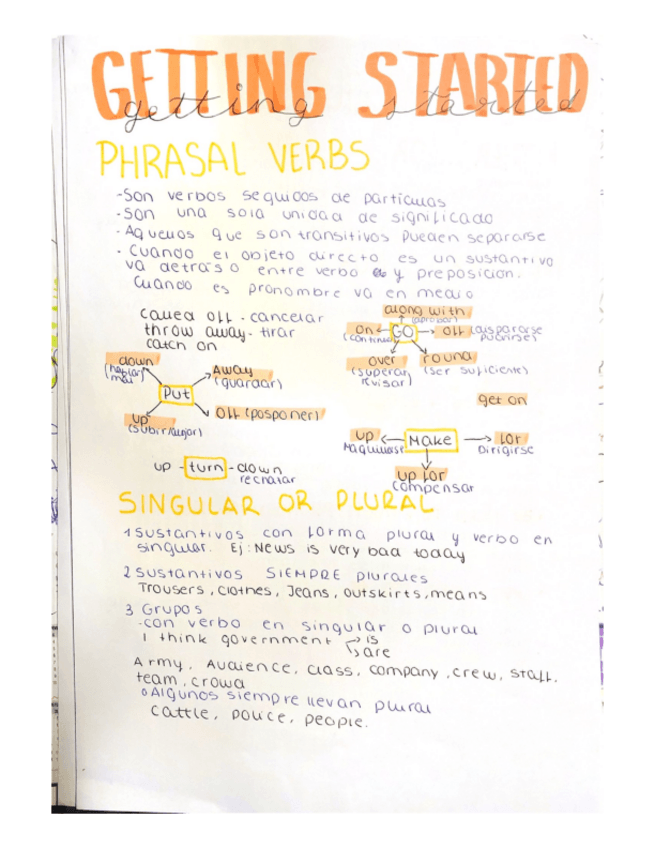 GETTING STARTED
getting started
PHRASAL VERBS
-Son verbos seguidos de partículas
-Son una sola unidad de significado
· Aquellos que son transitivos pueden separarse
· Cuando el objeto directo es un sustantivo
va detrás o entre verbo y preposición.
Cuando es pronombre va en medio
called off - cancelar
throw away - tirar
catch on
along with
(aprobar)
on
(continuar)
GO
off (dispararse
pudrirse)
over
(superar
revisar)
round
(ser suficiente)
get on
down
(hablar
mal)
Away
(guardar)
Put
up
(subir/alojar)
off (posponer)
up
Maquillarse
Make
for
Dirigirse
up for
compensar
up - turn - down
rechazar
SINGULAR OR PLURAL
1 Sustantivos con forma plural y verbo en
singular. Ej: News is very bad today
2 Sustantivos SIEMPRE plurales
Trousers, clothes, Jeans, outskirts, means
3 Grupos
-con verbo en singular o plural
I think government is
are
Army, Audience, class, company, crew, staff,
team, crowd
o Algunos siempre llevan plural
cattle, police, people.